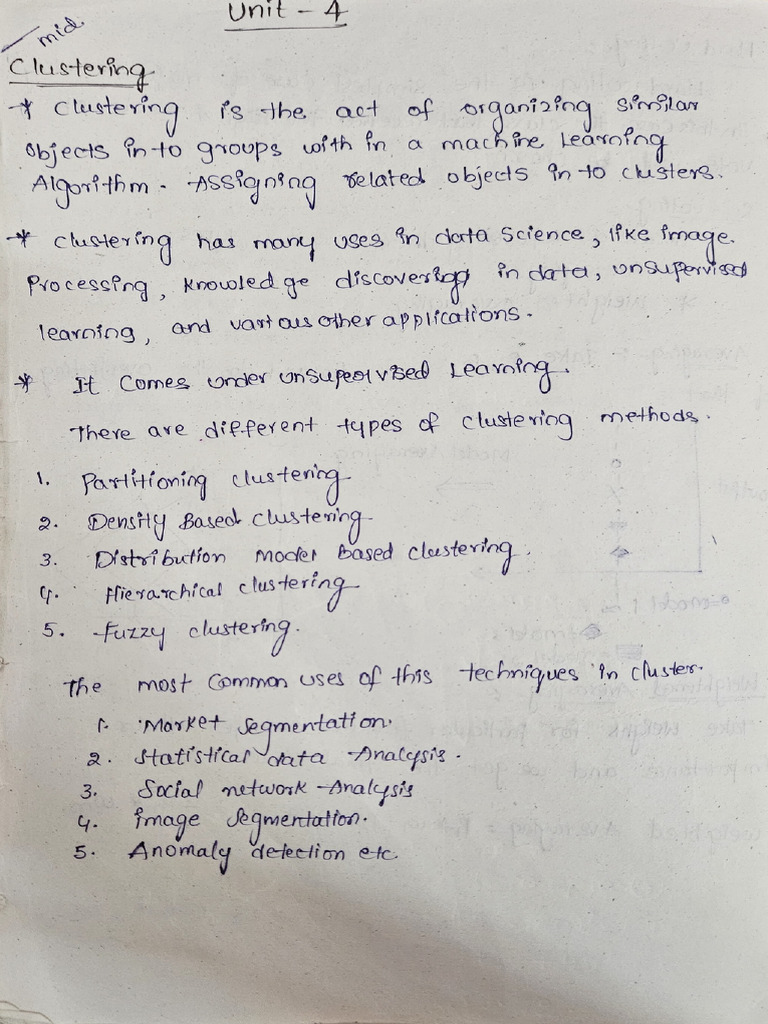 Unit - 4
mid
Clustering
* Clustering is the act of organizing similar
objects in to groups with in a machine Learning
Algorithm. Assigning related objects in to clusters.
* Clustering has many uses in data science, like image
Processing, knowledge discovering in data, unsupervised
learning, and various other applications.
* It Comes under unsupervised Learning.
There are different types of clustering methods.
1. Partitioning clustering
2. Density Based clustering
3. Distribution Model Based clustering.
4. Hierarchical clustering
5. Fuzzy clustering.
The most Common uses of this techniques in cluster.
1. Market segmentation.
2. Statistical data Analysis.
3. Social network Analysis
4. image segmentation.
5. Anomaly detection etc.